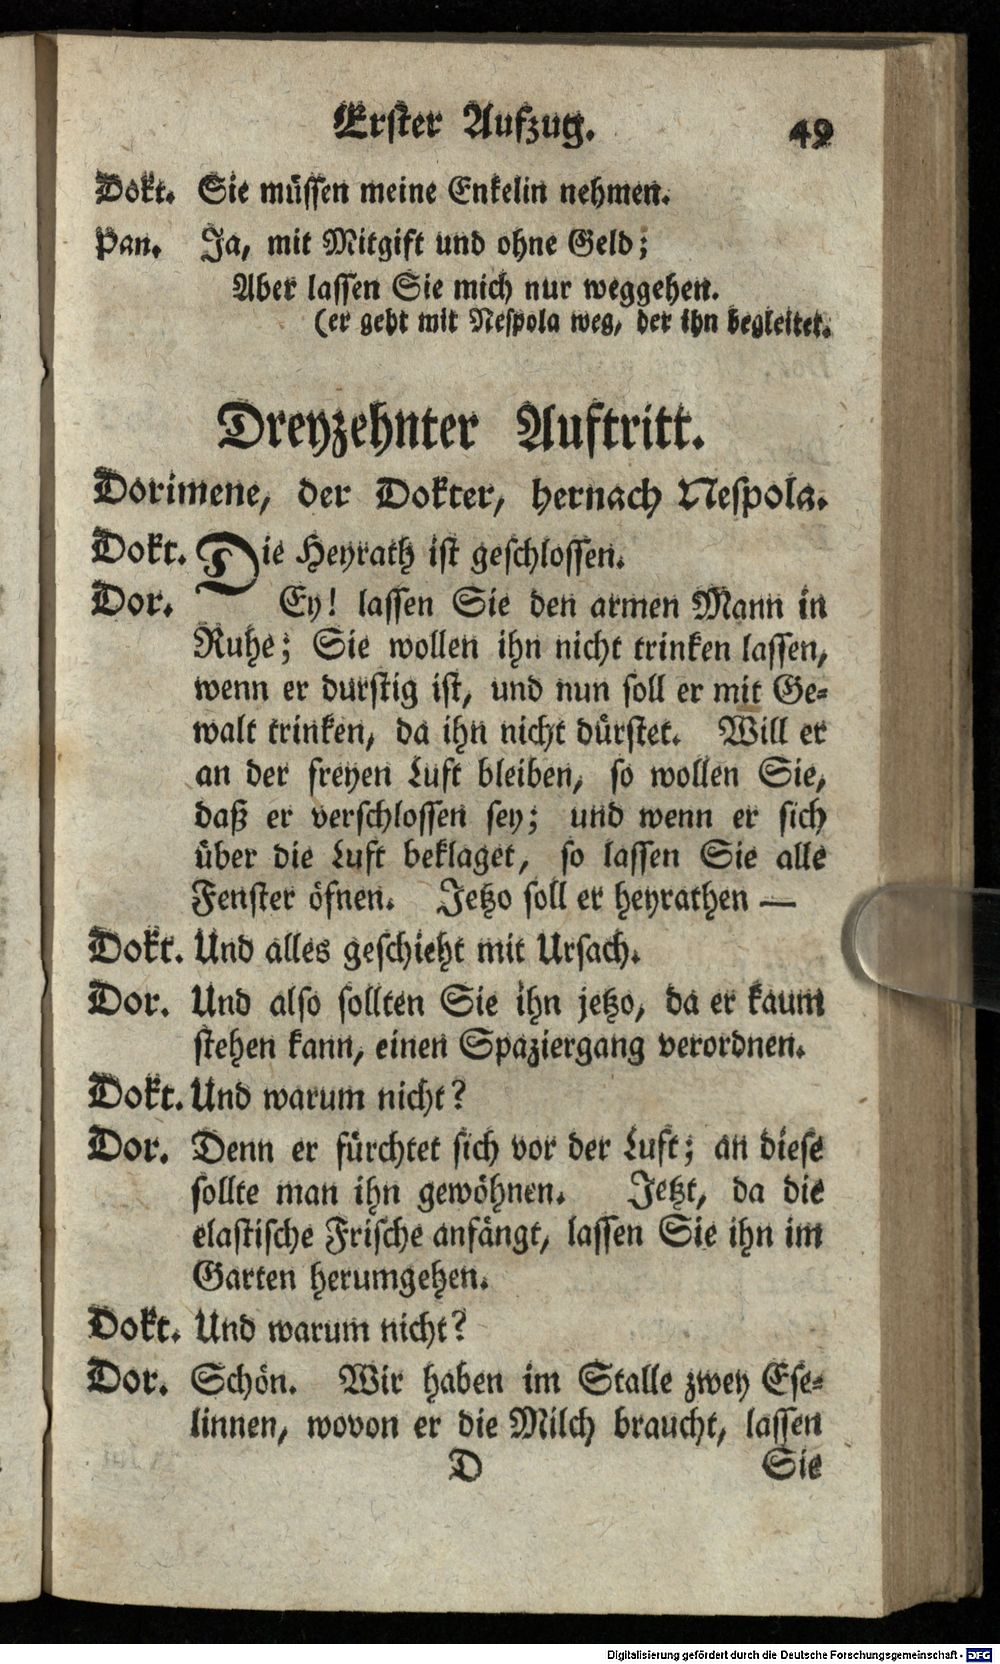 Erster Aufzug. 49
Dokt. Sie müssen meine Enkelin nehmen.
Pan. Ja, mit Mitgift und ohne Geld;
Aber lassen Sie mich nur weggehen.
(er geht mit Nespola weg, der ihn begleitet.
Dreyzehnter Auftritt.
Dorimene, der Dokter, hernach Nespola.
Dokt. Die Heyrath ist geschlossen.
Dor. Ey! lassen Sie den armen Mann in
Ruhe; Sie wollen ihn nicht trinken lassen,
wenn er durstig ist, und nun soll er mit Ge-
walt trinken, da ihn nicht dürstet. Will er
an der freyen Luft bleiben, so wollen Sie,
daß er verschlossen sey; und wenn er sich
über die Luft beklaget, so lassen Sie alle
Fenster öfnen. Jetzo soll er heyrathen —
Dokt. Und alles geschieht mit Ursach.
Dor. Und also sollten Sie ihn jetzo, da er kaum
stehen kann, einen Spaziergang verordnen.
Dokt. Und warum nicht?
Dor. Denn er fürchtet sich vor der Luft; an diese
sollte man ihn gewöhnen. Jetzt, da die
elastische Frische anfängt, lassen Sie ihn im
Garten herumgehen.
Dokt. Und warum nicht?
Dor. Schön. Wir haben im Stalle zwey Ese-
linnen, wovon er die Milch braucht, lassen
D Sie
Digitalisierung gefördert durch die Deutsche Forschungsgemeinschaft - DFG